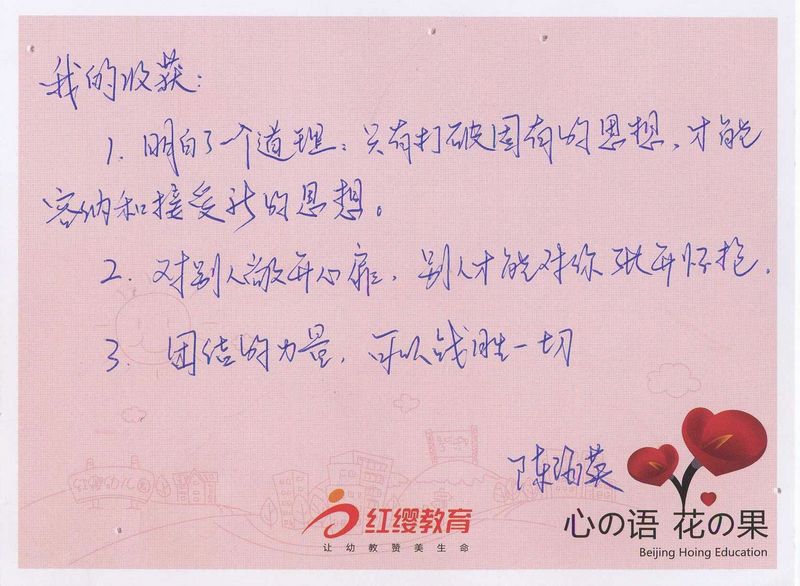 我的收获：
1. 明白了一个道理：只有打破固有的思想，才能
容纳和接受新的思想。
2. 对别人敞开心扉，别人才能对你张开怀抱.
3. 团结的力量，可以战胜一切
陈英
红缨教育
让幼教赞美生命
心の语 花の果
Beijing Hoing Education